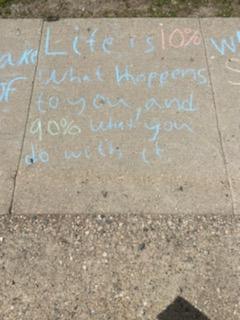 ake Life is 10% W
OF What Happens S
to you, and
90% what you
do with it